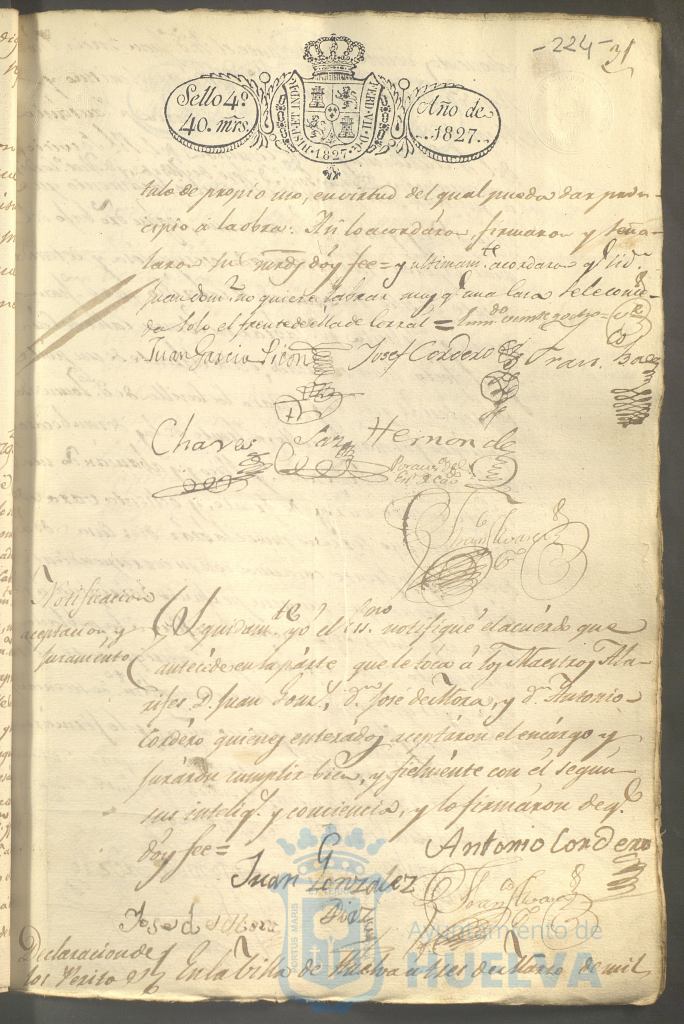 -224-
21
Sello 4º
40. mrs.
HISP. ET IND. R
FERD. VII. D. G.
1827
Año de
1827.
tulo de propio uso, en virtud del qual pueda dar prin-
cipio á la obra. Así lo acordáron, firmaron y seña-
laron sus mrds doy fee = y ultimamte. acordaron q.e si dn.
Juan no quiere labrar mas q.e una casa se le conce-
da solo el frente de
Juan Garcia Josef Cordero Fran. Baez
Chaves Saz Hernande
Fran Alvarez
Notificacion
aceptacion y
juramento
Seguidamte. yo el Essno. notifiqué el acuerdo que
antecede en la parte que le toca á los Maestros Ala-
rifes D. Juan Gonz., dn. José de Mora, y dn. Antonio
Cordéro quienes enterados aceptáron el encárgo y
juráron cumplir bien, y fielménte con él segun
sus inteliga. y conciencia, y lo firmáron de q.e
doy fee =
Antonio Cordero
Juan Gonzalez
Diaz
Jose de Mora
Fran Alvarez
Declaracion de
los Perito
En la Villa de Huelva a tres de Marzo de mil
PORTUS MARIS
Ayuntamiento de
HUELVA